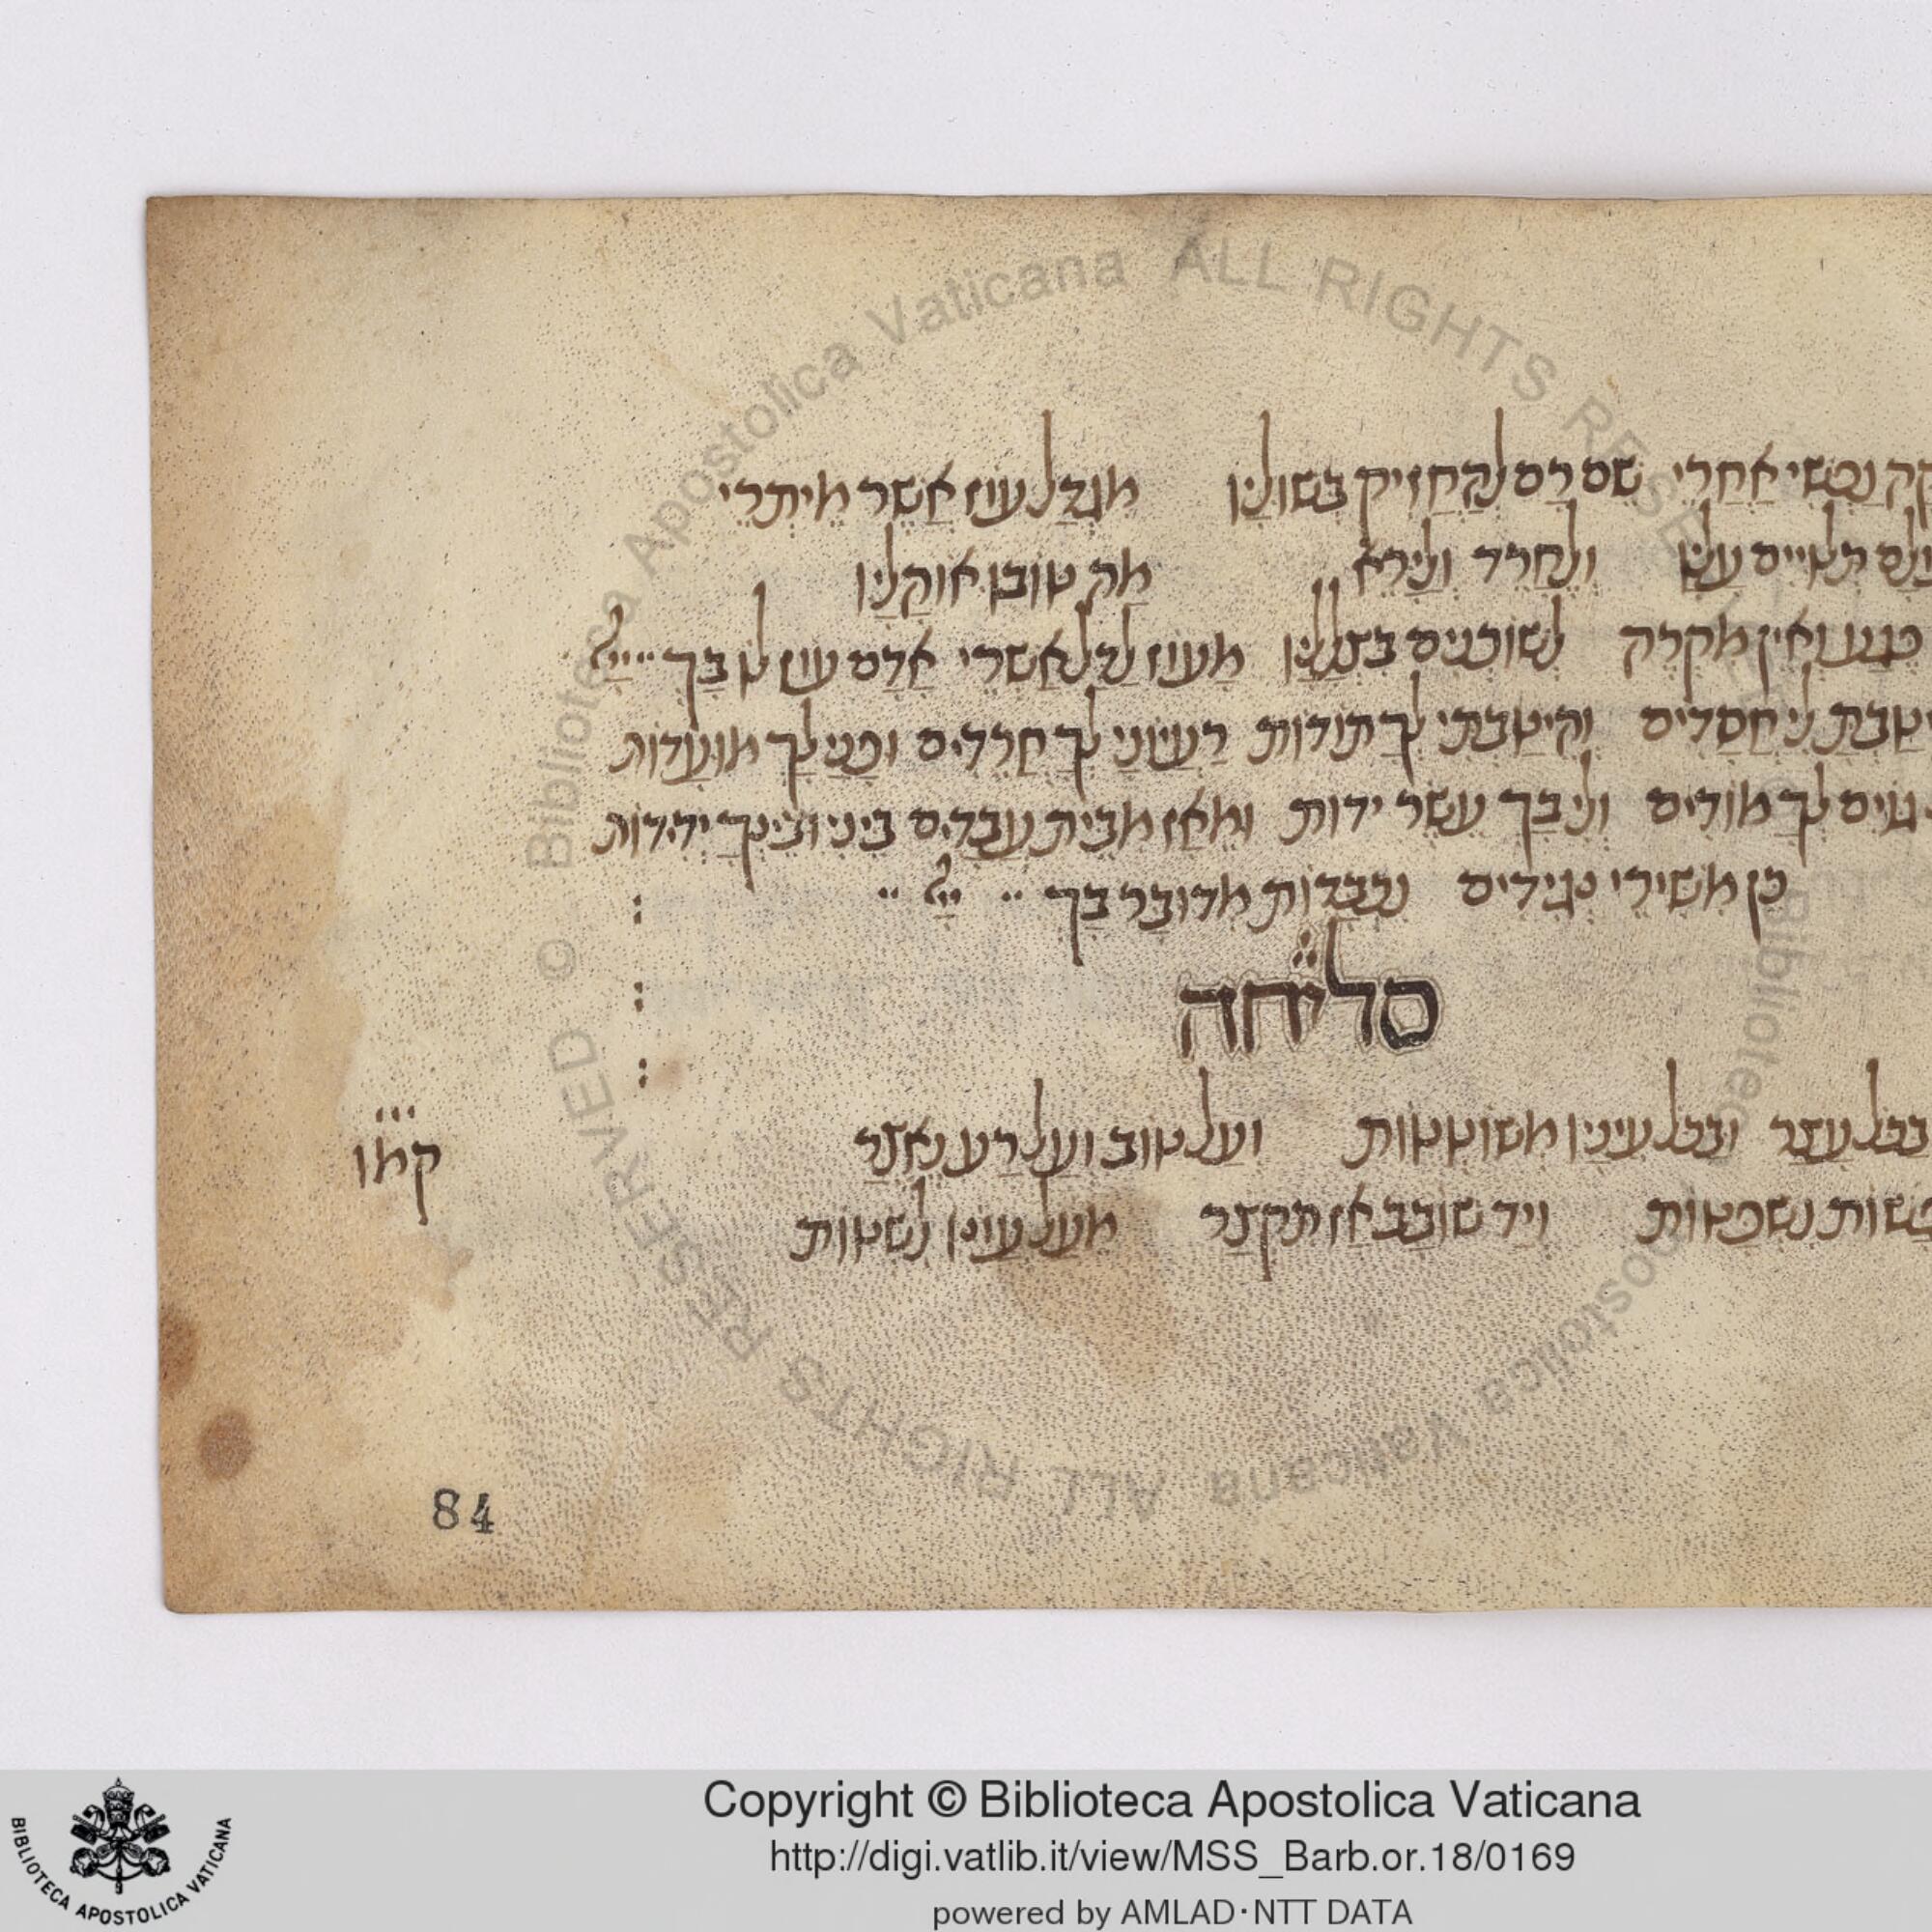 נפשי אחרי שם רם להחזיק בשולינו מגדל עוז אשר מיתרי
עלינו ונחרד ונירא מה טובו אוהלינו
ואין מקרה לשוכנים בצללינו מעוז לדל אשרי אדם עוז לו בך
לי חסדים והיטבתי לך תודות רעיוני לך חרדים ופני לך מועדות
גוים לך מודים ולי בך עשר ידות ומאז מבית עבדים ביני ובינך ידידות
כן משירי נגידים נכבדות מדובר בך
סליחה
בכל עצר ובכל עיניו משוטטות ועל טוב ועל רע נאצר
קמו
נשפטות ויד שובב אז תקצר מעל עינו לשטות
84
Biblioteca Apostolica Vaticana ALL RIGHTS RESERVED ©
Biblioteca Apostolica Vaticana ALL RIGHTS RESERVED ©
BIBLIOTECA APOSTOLICA VATICANA
Copyright © Biblioteca Apostolica Vaticana
http://digi.vatlib.it/view/MSS_Barb.or.18/0169
powered by AMLAD·NTT DATA